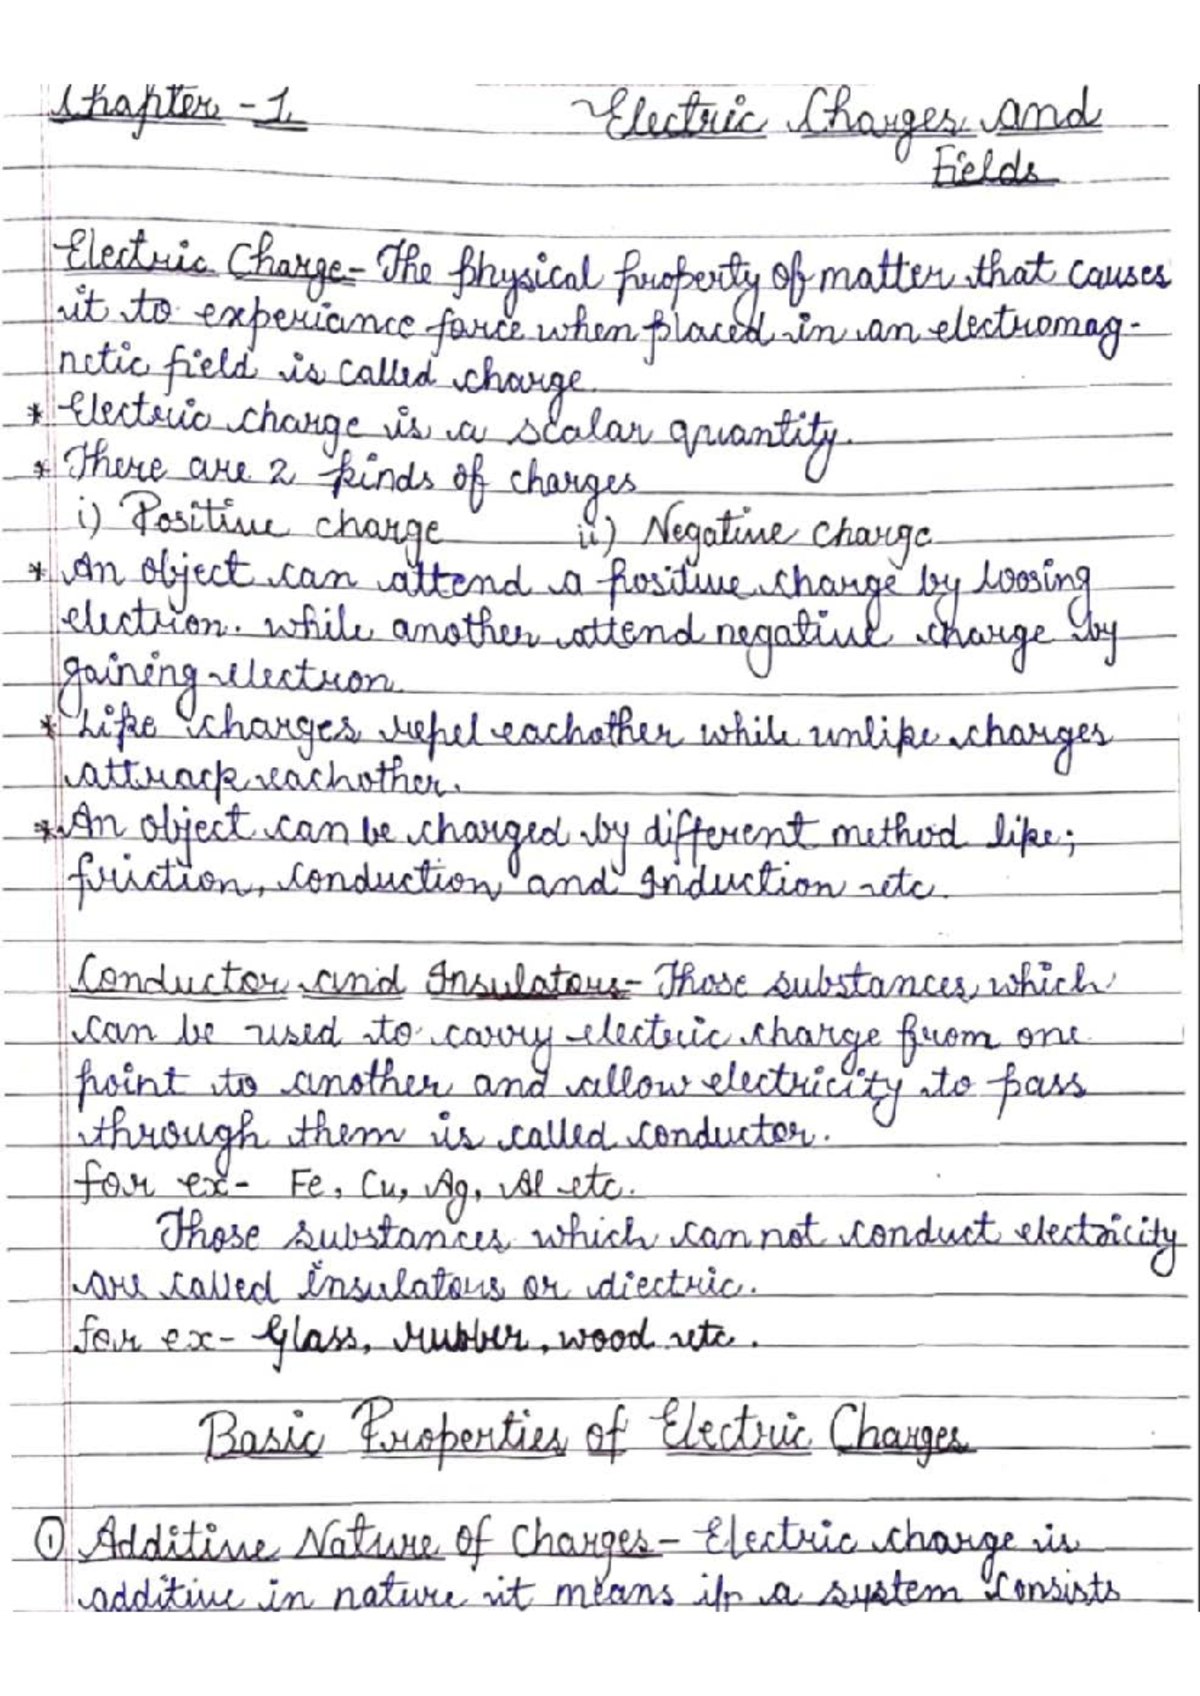 Chapter - 1. Electric Charges and
Fields
Electric Charge- The physical property of matter that causes
it to experiance force when placed in an electromag-
netic field is called charge.
* Electric charge is a scalar quantity.
* There are 2 kinds of charges
i) Positive charge ii) Negative charge
* An object can attend a positive charge by loosing
electron. while another attend negative charge by
gaining electron.
* Like charges repel eachother while unlike charges
attrack eachother.
* An object can be charged by different method like;
friction, conduction and Induction etc.
Conductor and Insulators- Those substances which
can be used to carry electric charge from one
point to another and allow electricity to pass
through them is called conductor.
for ex- Fe, Cu, Ag, Al etc.
Those substances which can not conduct electricity
are called insulators or diectric.
for ex- Glass, rubber, wood etc.
Basic Properties of Electric Charges
① Additive Nature of Charges- Electric charge is
additive in nature it means if a system consists